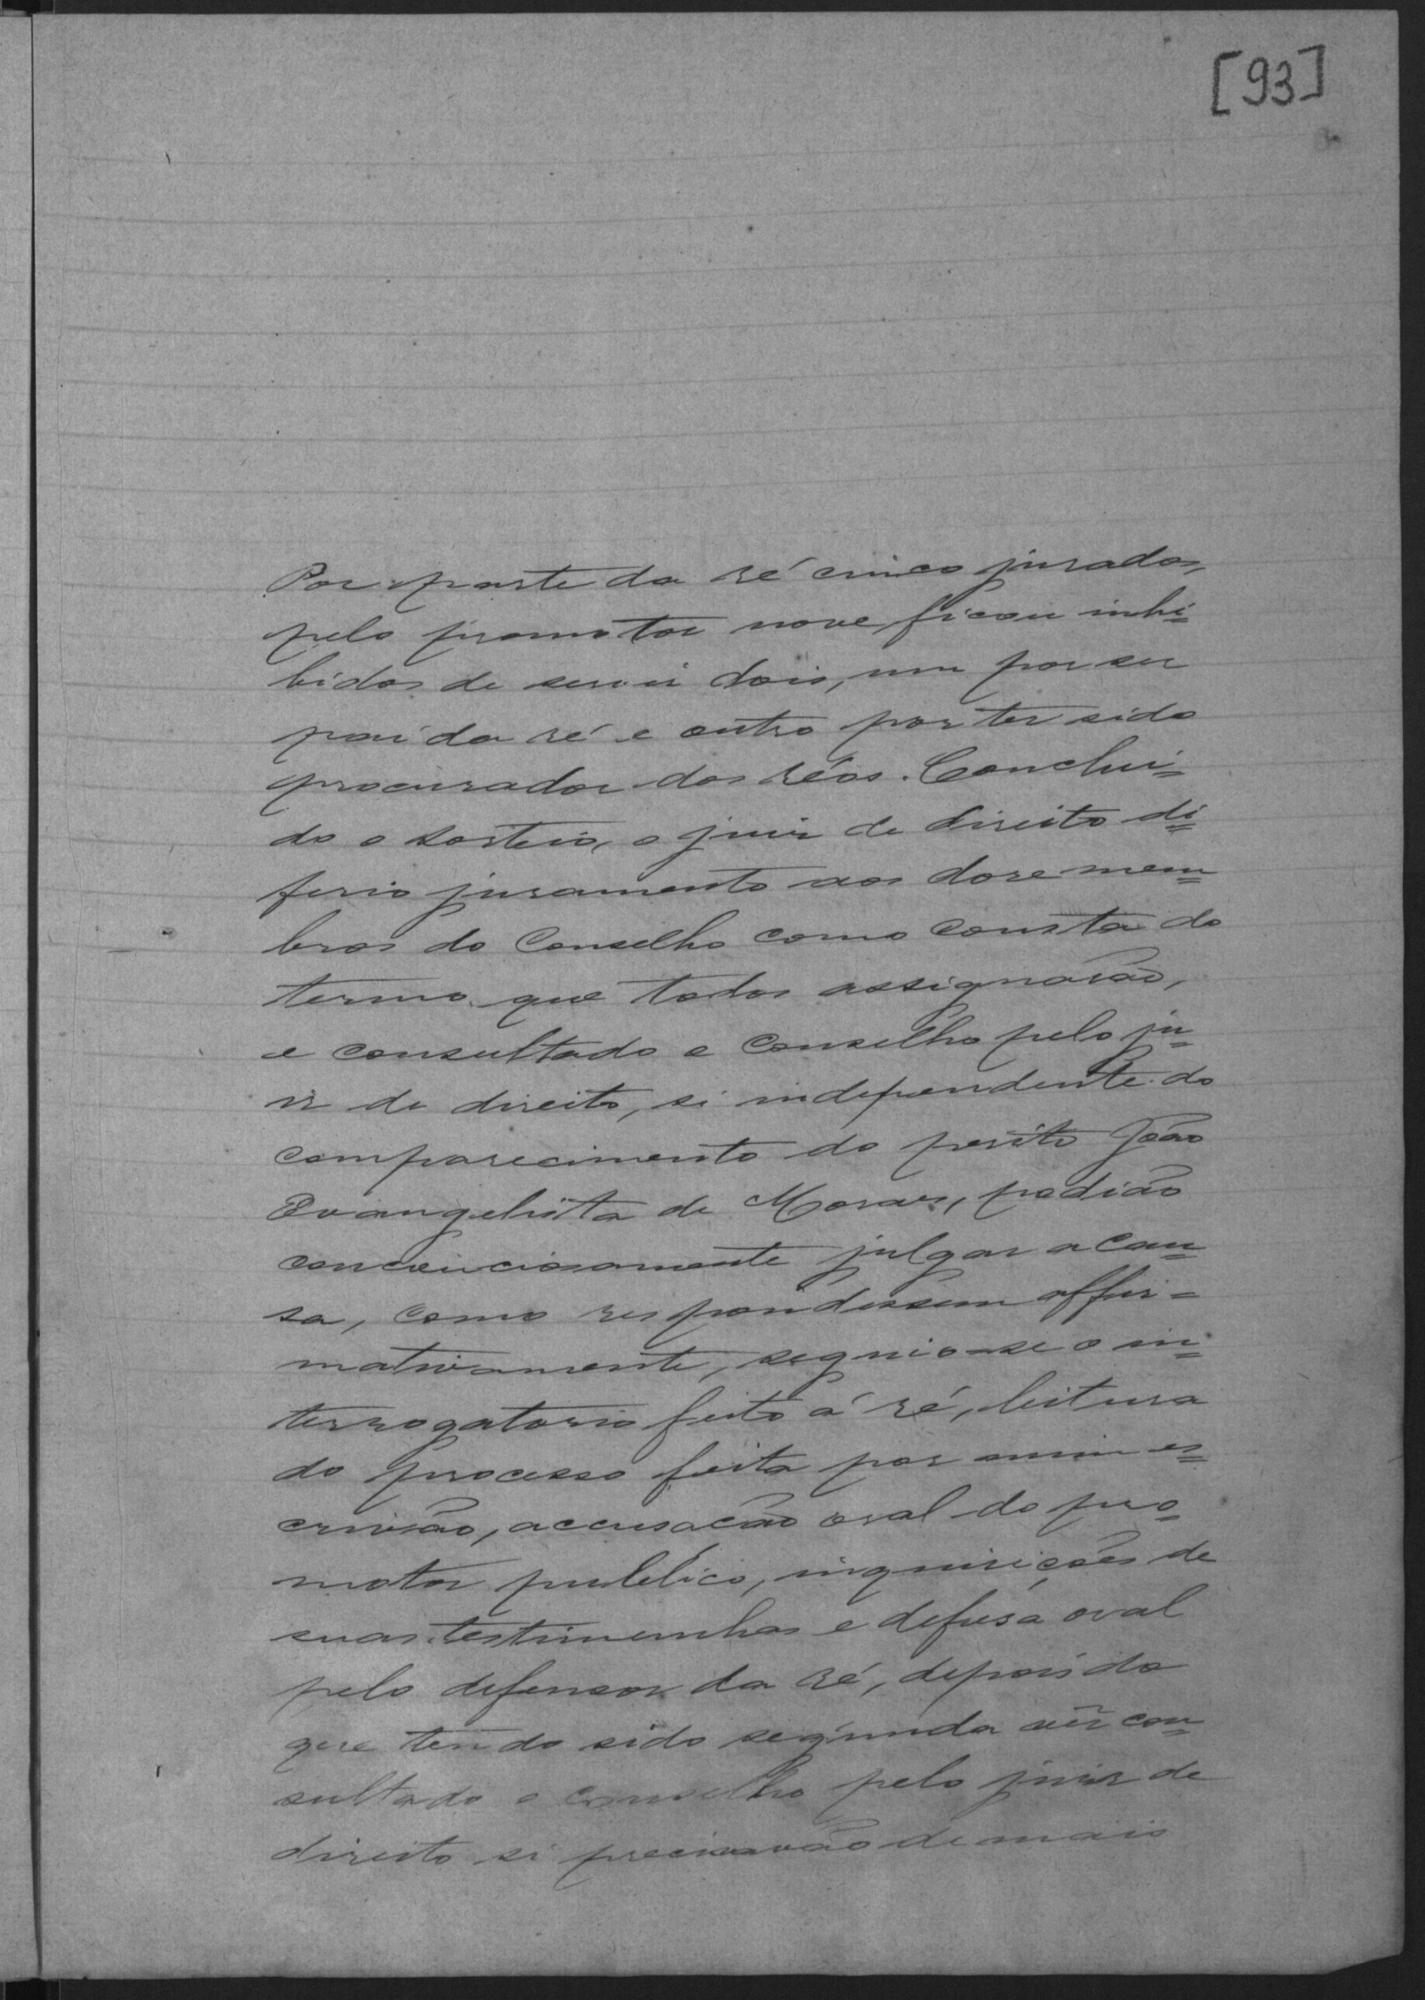 [93]
Por parte da ré cinco jurados,
pelo promotor nove, ficou inhi=
bidos de servir dois, um por ser
pai da ré e outro por ter sido
procurador dos réos. Conclui=
do o sorteio, o juiz de direito di=
ferio juramento aos doze mem=
bros do Conselho como consta do
termo que todos assignarão,
e consultado o Conselho pelo ju=
iz de direito, si independente do
comparecimento do perito João
Evangelista de Moraes, podião
conscienciosamente julgar a cau=
sa, como respondessem affir=
mativamente, seguio-se o in=
terrogatorio feito á ré, leitura
do processo feita por mim es=
crivão, accusacão oral do pro=
motor publico, inquirições de
suas testimunhas e defesa oral
pelo defensor da ré, depois do
que tendo sido segunda vez con=
sultado o conselho pelo juiz de
direito si precisavão de mais